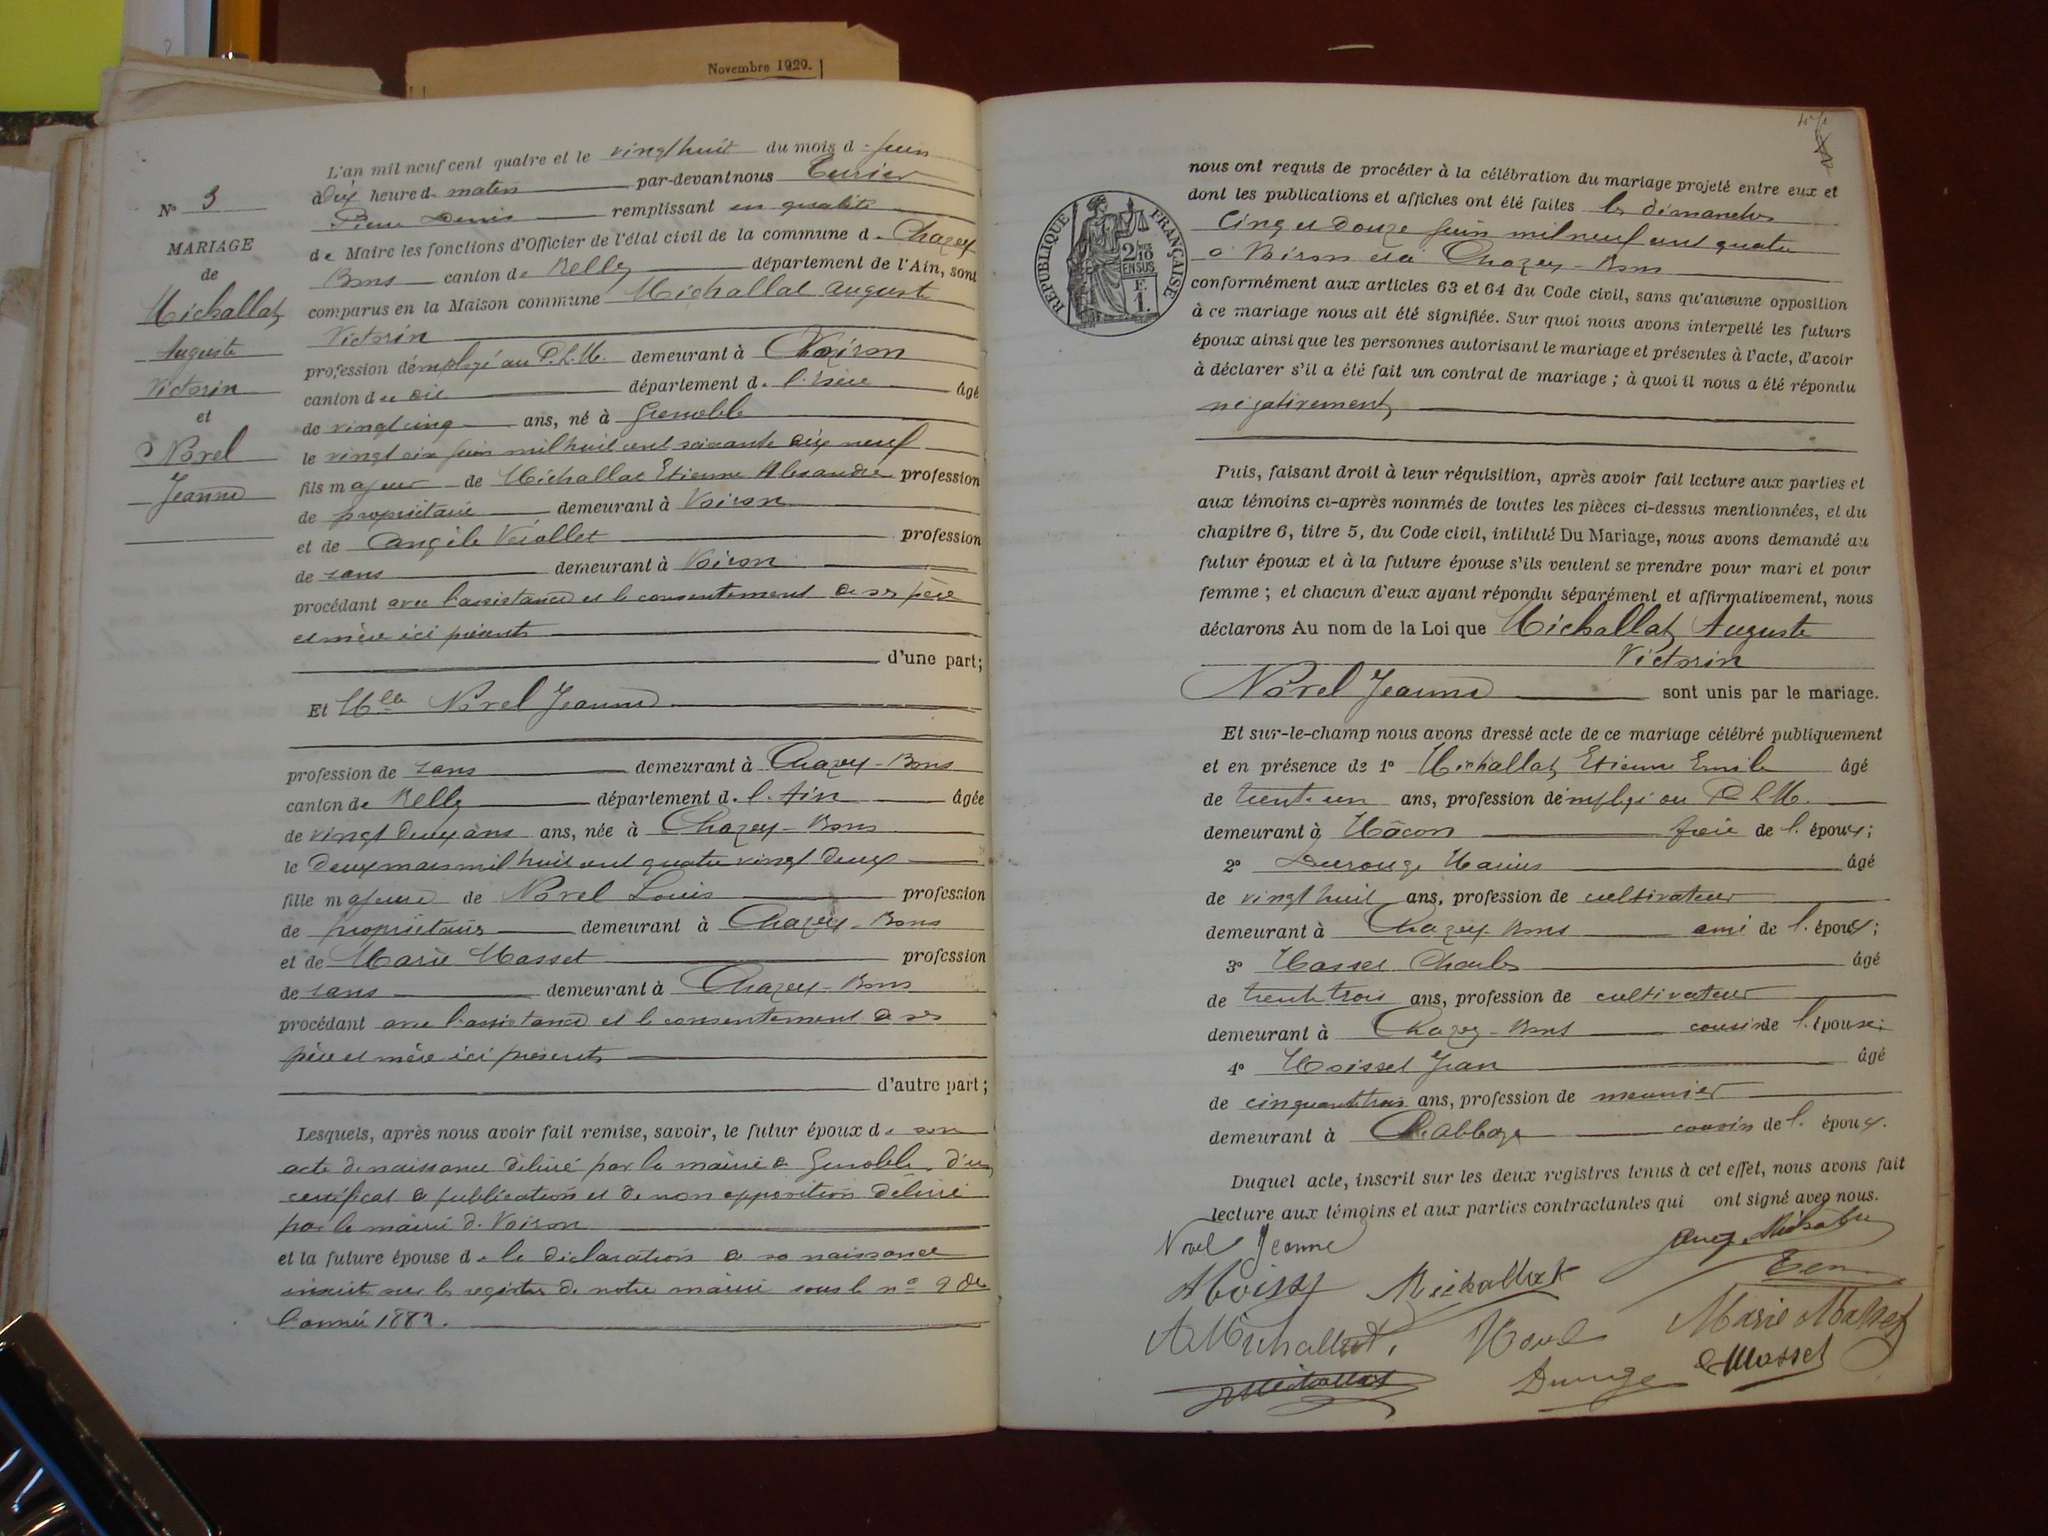 Novembre 1929.
L'an mil neuf cent quatre et le vingt huit du mois d. juin
à dix heure d. matin par-devant nous Terrier
Pierre Denis remplissant en qualité
de Maire les fonctions d'Officier de l'état civil de la commune d. Chazey
Bons canton de Belley département de l'Ain, sont
comparus en la Maison commune Michallat August
Victorin
profession d'employé au P.L.M. demeurant à Voiron
canton de dit département d. l'Isère âgé
de vingt cinq ans, né à Grenoble
le vingt six juin mil huit cent soixante dix neuf
fils majeur de Michallat Etienne Alexandre profession
de propriétaire demeurant à Voiron
et de Angèle Veollet profession
de sans demeurant à Voiron
procédant avec l'assistance et le consentement de ses père
et mère ici présents
d'une part;
Nº 3
MARIAGE
de
Michallat
Auguste
Victorin
et
Novel
Jeanne
Et Mlle Novel Jeanne
profession de sans demeurant à Chazey-Bons
canton de Belley département d. l'Ain âgée
de vingt deux ans ans, née à Chazey-Bons
le deux mars mil huit cent quatre vingt deux
fille majeure de Novel Louis profession
de propriétaire demeurant à Chazey-Bons
et de Marie Masset profession
de sans demeurant à Chazey-Bons
procédant avec l'assistance et le consentement de ses
père et mère ici présents
d'autre part;
Lesquels, après nous avoir fait remise, savoir, le futur époux de son
acte de naissance délivré par la mairie de Grenoble, d'un
certificat de publication et de non opposition délivré
par la mairie d. Voiron
et la future épouse d. la déclaration de sa naissance
inscrit sur le registre de notre mairie sous le nº 9 de
l'année 1882.
nous ont requis de procéder à la célébration du mariage projeté entre eux et
dont les publications et affiches ont été faites les dimanches
cinq et douze juin mil neuf cent quatre
à Voiron et à Chazey-Bons
RÉPUBLIQUE FRANÇAISE
2/10
EN SUS
F.
1.
conformément aux articles 63 et 64 du Code civil, sans qu'aucune opposition
à ce mariage nous ait été signifiée. Sur quoi nous avons interpellé les futurs
époux ainsi que les personnes autorisant le mariage et présentes à l'acte, d'avoir
à déclarer s'il a été fait un contrat de mariage; à quoi il nous a été répondu
négativement
Puis, faisant droit à leur réquisition, après avoir fait lecture aux parties et
aux témoins ci-après nommés de toutes les pièces ci-dessus mentionnées, et du
chapitre 6, titre 5, du Code civil, intitulé Du Mariage, nous avons demandé au
futur époux et à la future épouse s'ils veulent se prendre pour mari et pour
femme; et chacun d'eux ayant répondu séparément et affirmativement, nous
déclarons Au nom de la Loi que Michallat Auguste
Victorin
Novel Jeanne sont unis par le mariage.
Et sur-le-champ nous avons dressé acte de ce mariage célébré publiquement
et en présence de 1º Michallat Etienne Emile âgé
de trente un ans, profession d'employé au P L M.
demeurant à Mâcon frère de l. époux;
2º Durouge Marius âgé
de vingt huit ans, profession de cultivateur
demeurant à Chazey-Bons ami de l. époux;
3º Masset Charles âgé
de trente trois ans, profession de cultivateur
demeurant à Chazey-Bons cousin de l. épouse;
4º Moisset Jean âgé
de cinquante trois ans, profession de meunier
demeurant à cousin de l. époux.
Duquel acte, inscrit sur les deux registres tenus à cet effet, nous avons fait
lecture aux témoins et aux parties contractantes qui ont signé avec nous.
Novel Jeanne
Michallat
A Michallat. Novel Marie Masset
Durouge Masset